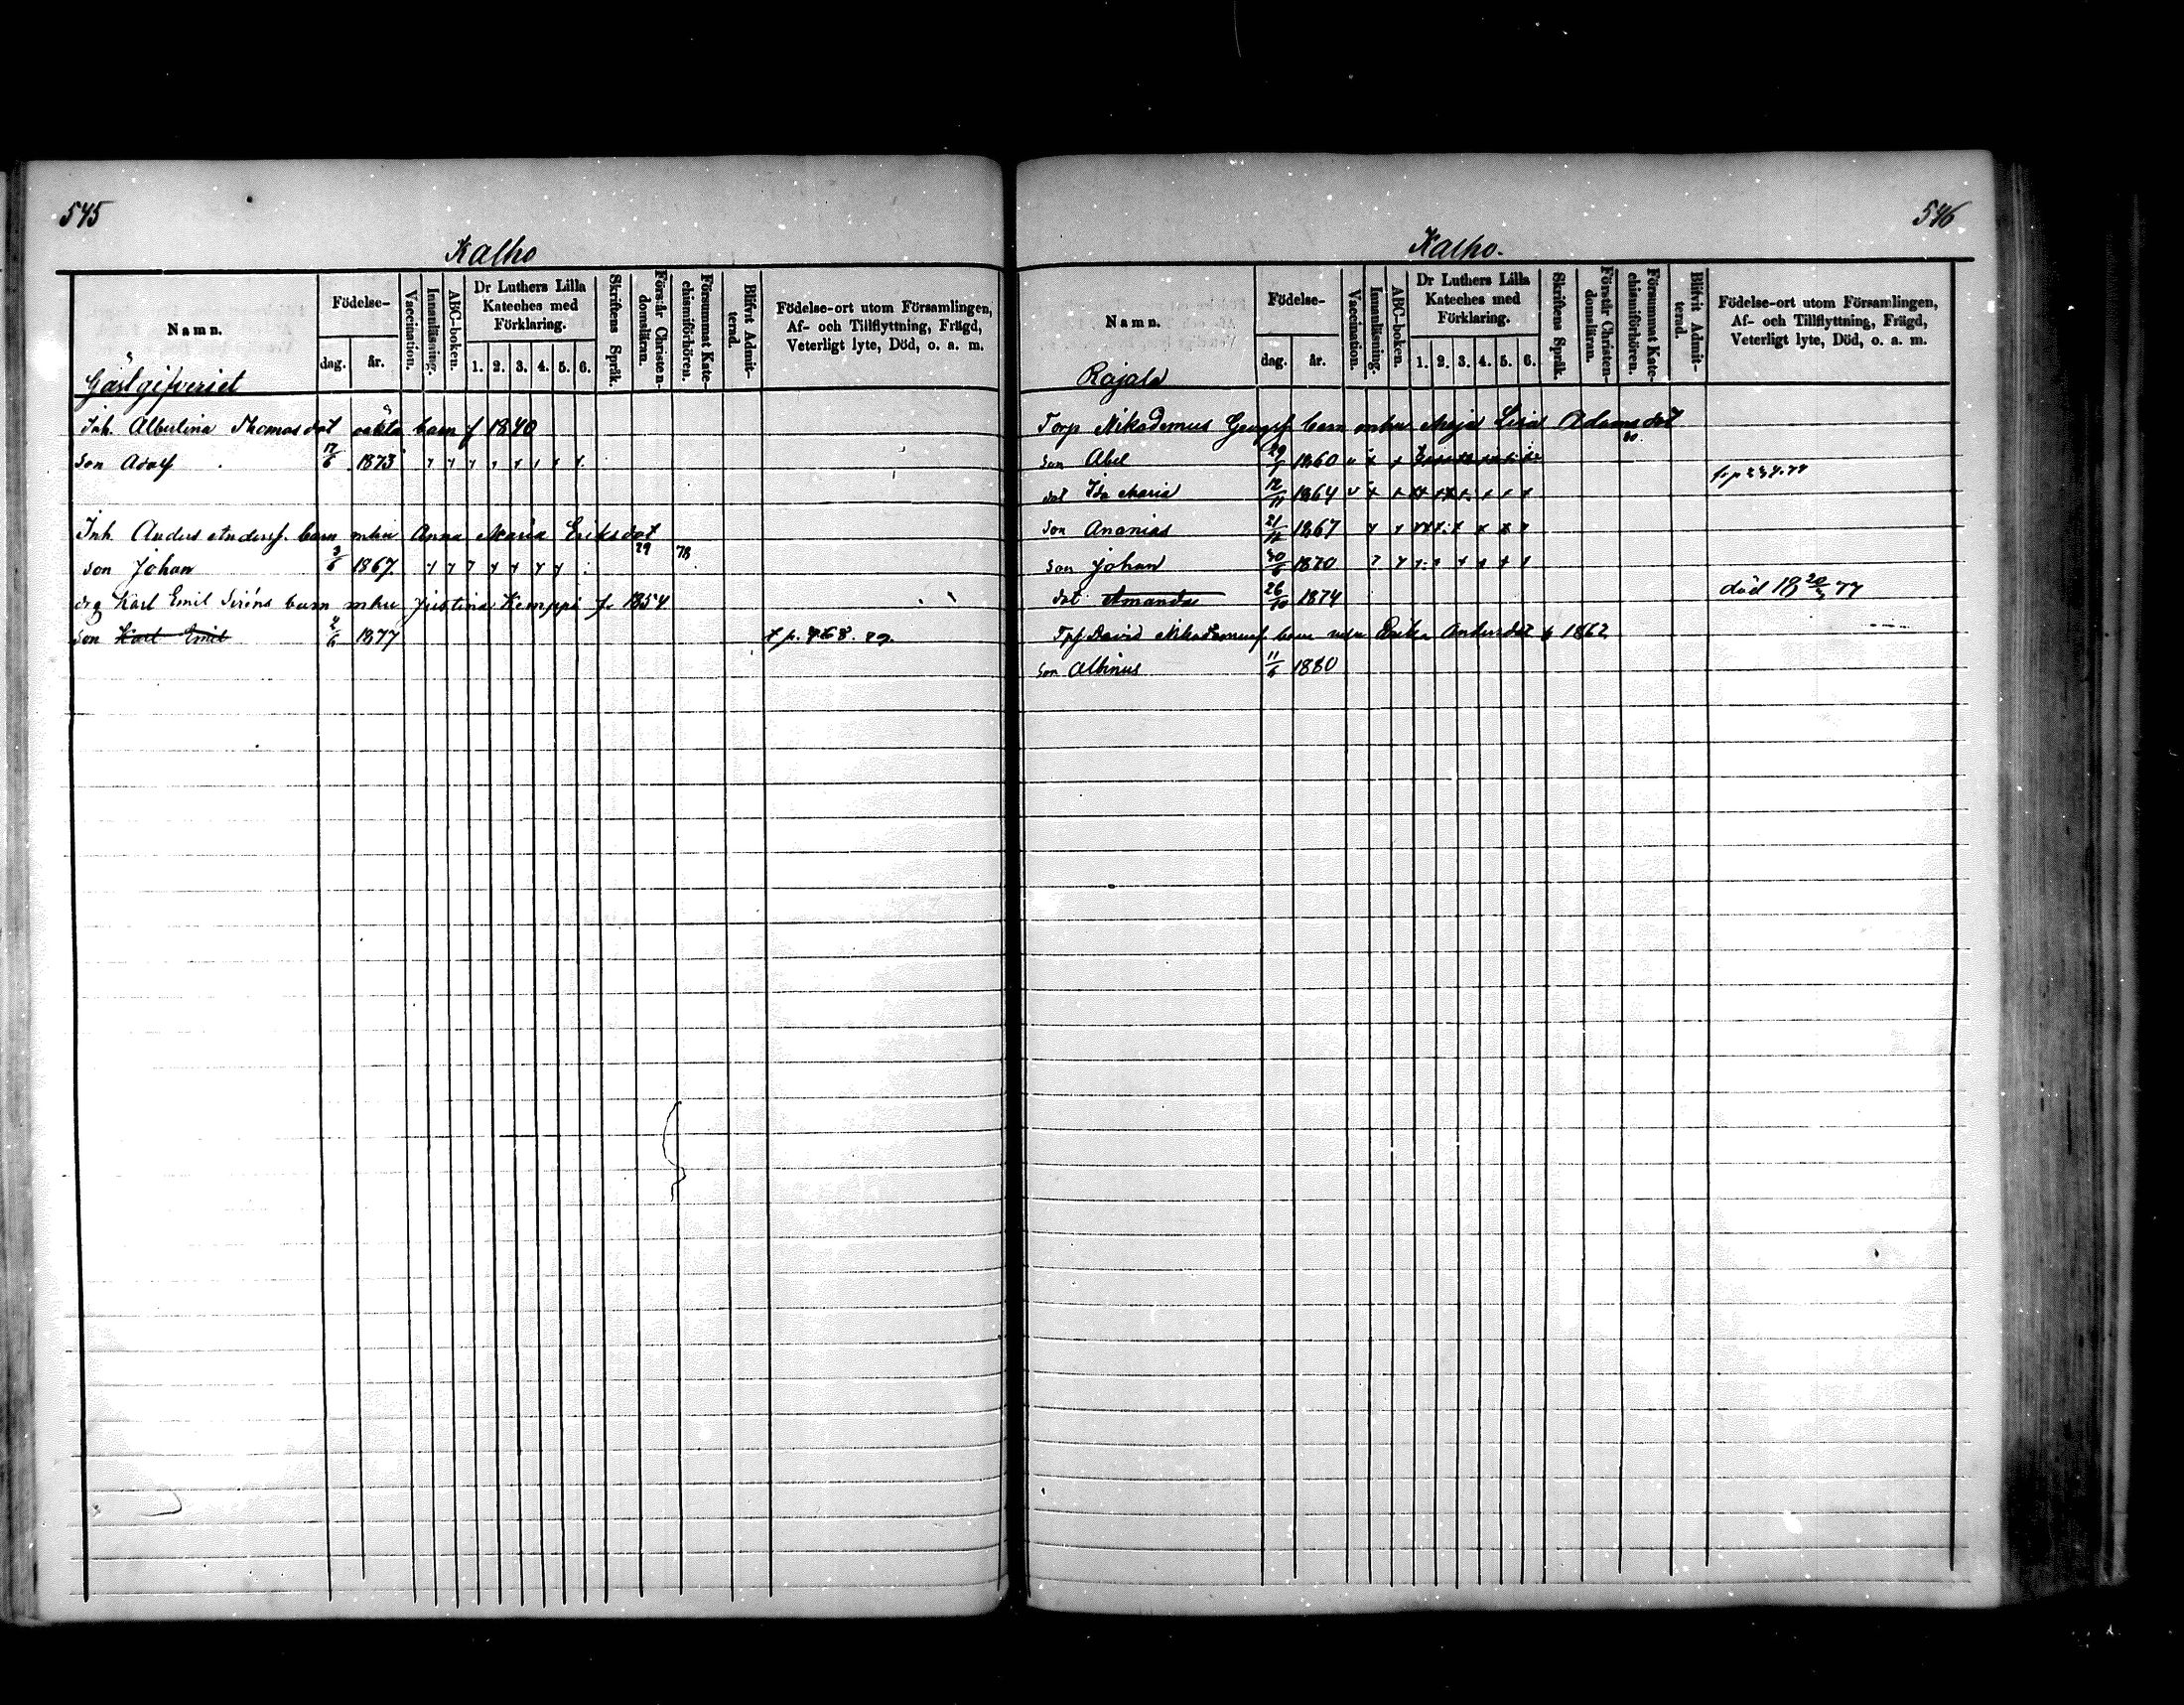 545
Kalho
Namn.
Födelse-
dag.
år.
Vaccination.
Innanläsning.
ABC-boken.
Dr Luthers Lilla
Kateches med
Förklaring.
1. 2. 3. 4. 5. 6.
Skriftens Språk.
Förstår Christen-
domsläran.
Försummat Kate-
chismiförhören.
Blifvit Admit-
terad.
Födelse-ort utom Församlingen,
Af- och Tillflyttning, Frägd,
Veterligt lyte, Död, o. a. m.
Gästgifveriet
Inh. Albertina Thomasdot oäkta barn f 1840
Son Adolf 17/6 1873
Inh. Anders Andersf. barn mhu Anna Maria Eriksdot 29
son Johan 3/6 1867 78
drg Karl Emil Siréns barn mhu Justina Kemppi f. 1854
son Karl Emil 2/6 1877 t p. 768. 82.
546
Kalho.
Namn.
Födelse-
dag.
år.
Vaccination.
Innanläsning.
ABC-boken.
Dr Luthers Lilla
Kateches med
Förklaring.
1. 2. 3. 4. 5. 6.
Skriftens Språk.
Förstår Christen-
domsläran.
Försummat Kate-
chismiförhören.
Blifvit Admit-
terad.
Födelse-ort utom Församlingen,
Af- och Tillflyttning, Frägd,
Veterligt lyte, Död, o. a. m.
Rajala
Torp Nikodemus Georgsf barn mhu Maja Lisa Adamsdot
son Abel 1860
dot Ida Maria 12/11 1864
son Ananias 1867
son Johan 30/6 1870
dot Amanda 26/10 1874 död 18 20/3 77
Tpf David Nikodemusf barn mhu Erika Andersdot f 1862
son Albinus 11/6 1880